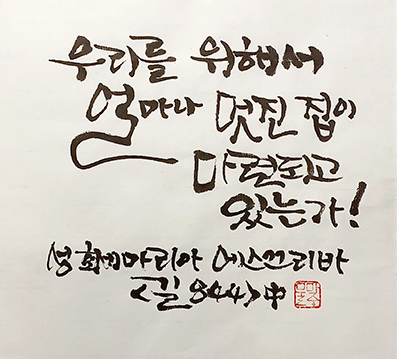 우리를 위해서
얼마나 멋진 집이
마련되고
있는가!
성 호세마리아 에스크리바
<길 844> 中